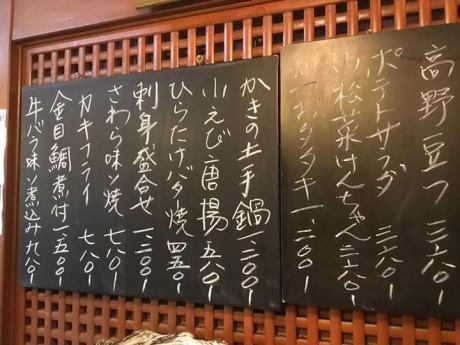 高野豆フ 三八〇ー
ポテトサラダ 三八〇ー
小松菜けんちゃん 三八〇ー
おタタキ 一、二〇〇ー
かきの土手鍋 一、二〇〇ー
小えび唐揚 五八〇ー
ひらたけバタ焼 四五〇ー
刺身盛合せ 一、二〇〇ー
さわら味ソ焼 七八〇ー
カキフライ 七八〇ー
金目鯛煮付 一、五〇〇ー
牛バラ味ソ煮込み 九八〇ー